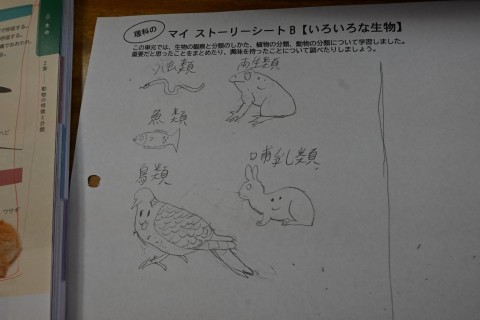 理科の
マイ ストーリーシートB【いろいろな生物】
この単元では、生物の観察と分類のしかた、植物の分類、動物の分類について学習しました。
重要だと思ったことをまとめたり、興味を持ったことについて調べたりしましょう。
両生類
魚類
鳥類
哺乳類
2章
動物の特徴と分類
ヘビ
ウサギ